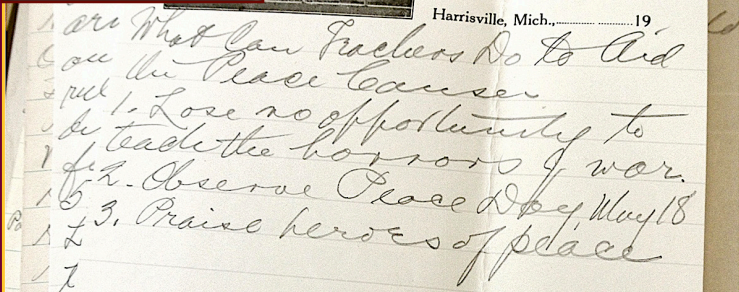 Harrisville, Mich.,....................19
What Can Teachers Do to Aid
the Peace Cause
1. Lose no opportunity to
teach the horrors of war.
2. Observe Peace Day, May 18
3. Praise heroes of peace